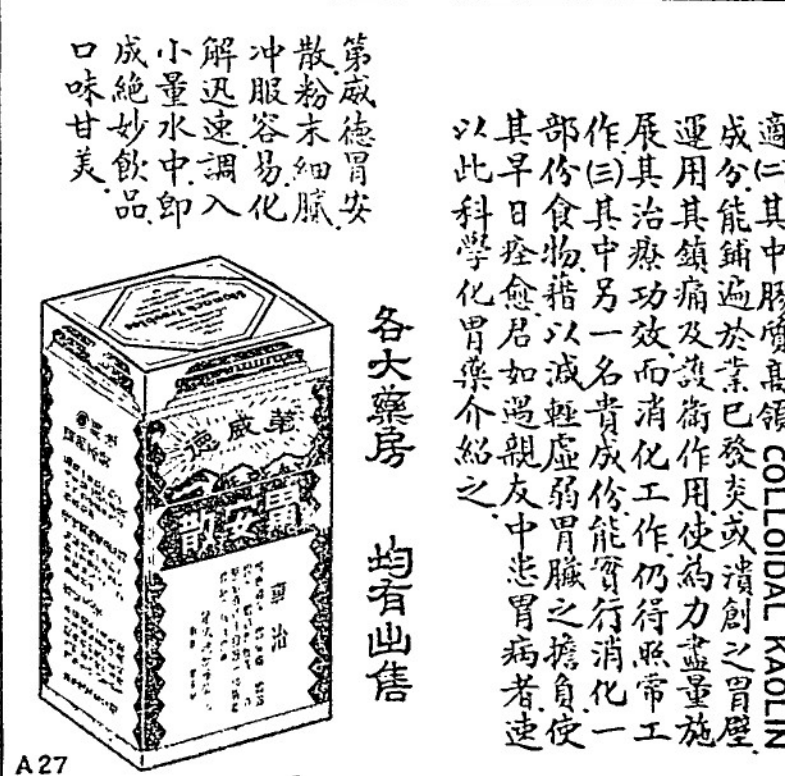 適(二)其中膠質高領 COLLOIDAL KAOLIN
成分.能鋪遍於業已發炎或潰創之胃壁.
運用其鎮痛及護衛作用.使葯力盡量施
展其治療功效.而消化工作.仍得照常工
作(三)其中另一名貴成份.能實行消化一
部份食物.藉以減輕虛弱胃臟之擔負.使
其早日痊愈.君如遇親友中患胃病者.速
以此科學化胃藥介紹之.
第威德胃安
散.粉末細膩.
冲服容易.化
解迅速.調入
小量水中.即
成絕妙飲品.
口味甘美.
各大藥房 均有出售
Stomach Troubles
第威德
胃安散
專治
A27